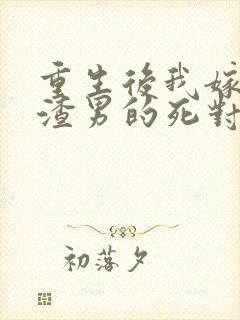 重生後我嫁
渣男的死對
初落夕